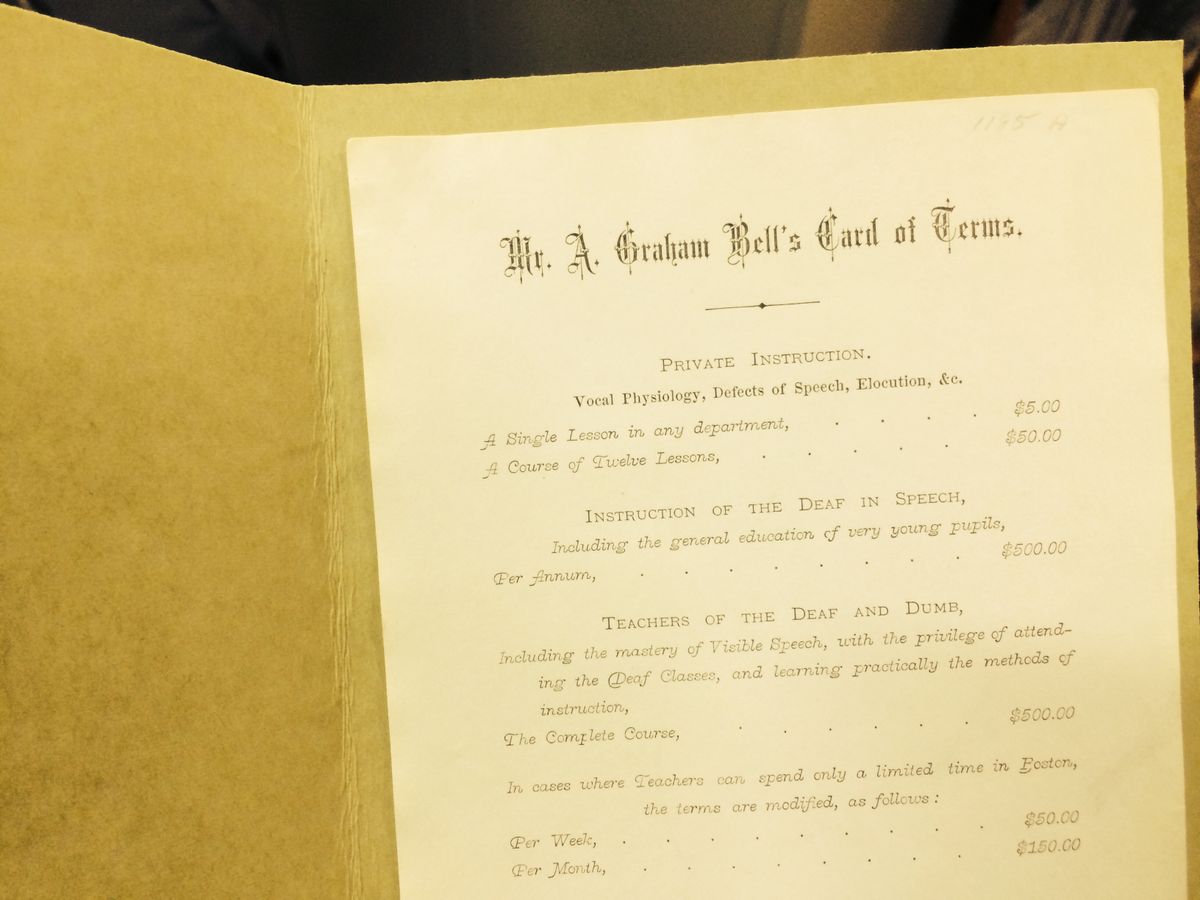 Mr. A. Graham Bell's Card of Terms.
Private Instruction.
Vocal Physiology, Defects of Speech, Elocution, &c.
A Single Lesson in any department, . . . . $5.00
A Course of Twelve Lessons, . . . . . $50.00
Instruction of the Deaf in Speech,
Including the general education of very young pupils,
Per Annum, . . . . . . . . $500.00
Teachers of the Deaf and Dumb,
Including the mastery of Visible Speech, with the privilege of attend-
ing the Deaf Classes, and learning practically the methods of
instruction,
The Complete Course, . . . . . . $500.00
In cases where Teachers can spend only a limited time in Boston,
the terms are modified, as follows:
Per Week, . . . . . . . . . $50.00
Per Month, . . . . . . . . $150.00